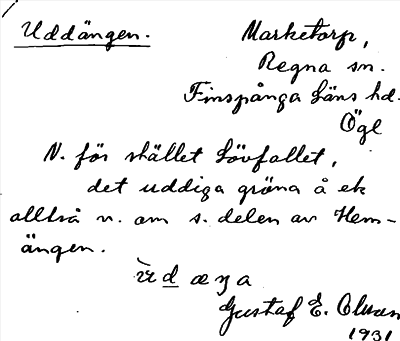 Uddängen.
Marketorp,
Regna sn.
Finspånga läns hd.
Ögl
N. för stället Lövfallet,
det uddiga gröna å ek
alltså n. om s. delen av Hem-
ängen.
Gustaf E. Olsson
1931